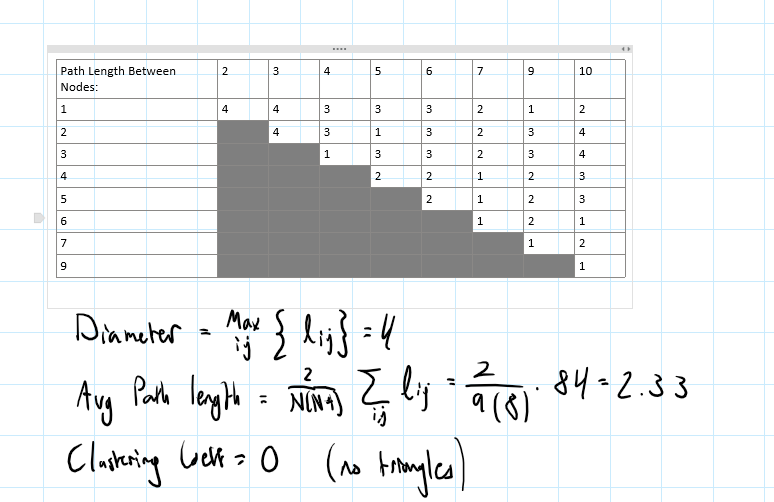 Path Length Between Nodes: 2 3 4 5 6 7 9 10
1 4 4 3 3 3 2 1 2
2 4 3 1 3 2 3 4
3 1 3 3 2 3 4
4 2 2 1 2 3
5 2 1 2 3
6 1 2 1
7 1 2
9 1
Diameter = Max ij { lij } = 4
Avg Path length = 2/N(N-1) Σij lij = 2/9(8) · 84 = 2.33
Clustering Coeff = 0 (no triangles)